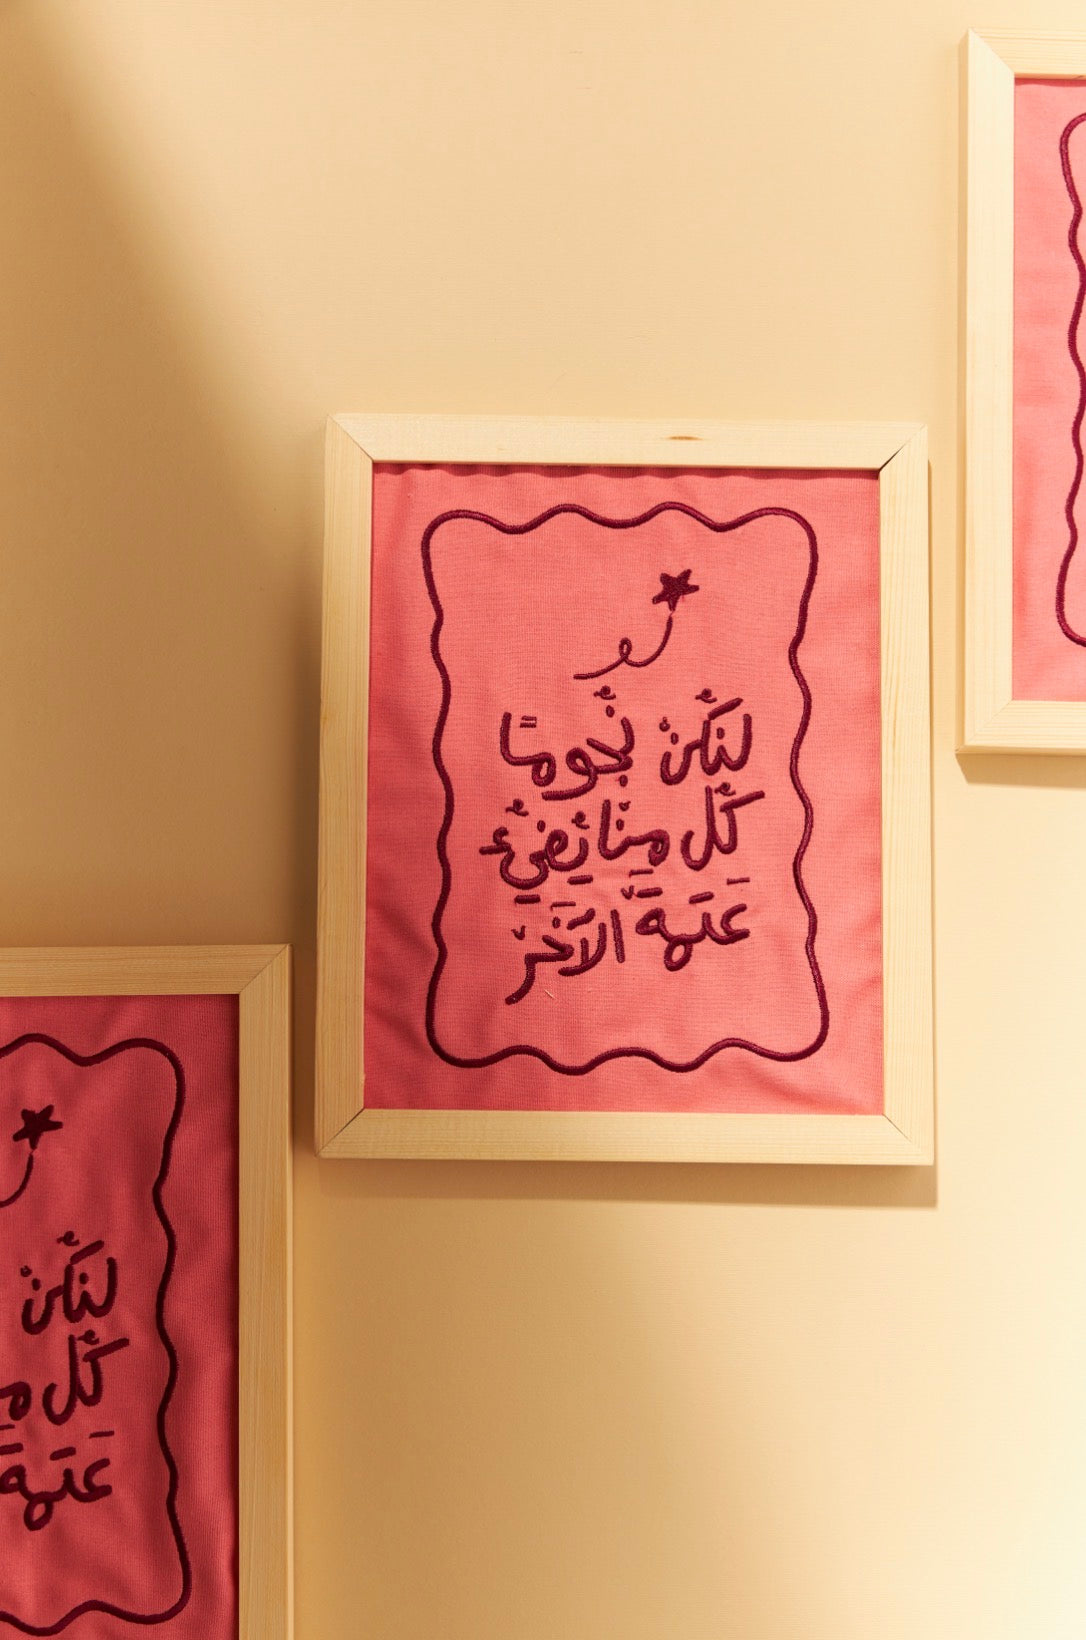 لنَكُنْ نُجومًا
كُل منّا يُضيءُ
عَتمَةَ الآخَرِ
لنَكُنْ
كُل
عَتمَةَ